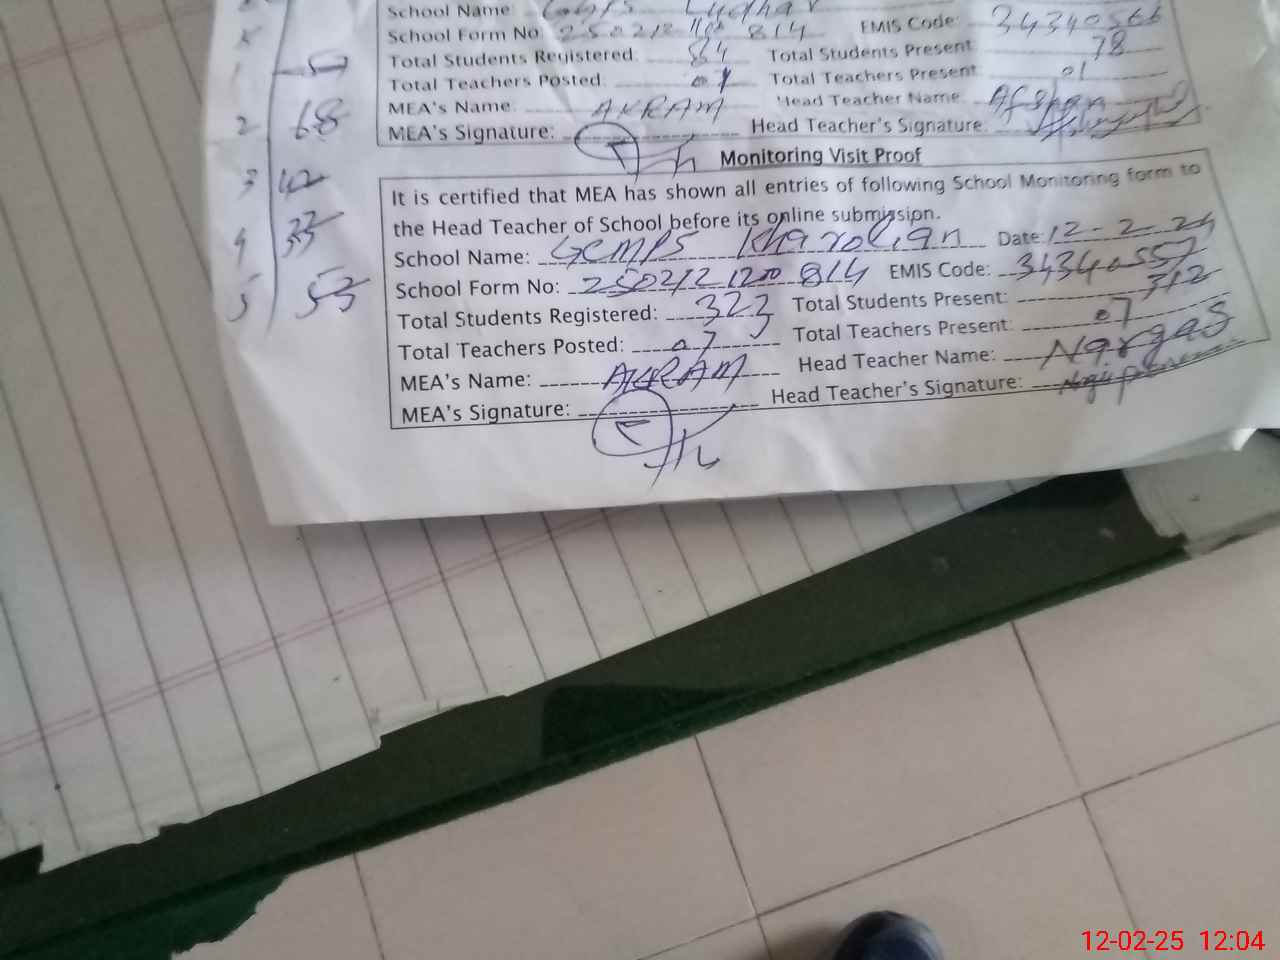 School Name:
School Form No: 814 EMIS Code: 34340566
Total Students Registered: Total Students Present: 78
Total Teachers Posted: Total Teachers Present: 01
MEA's Name: AKRAM Head Teacher Name: Afshan
MEA's Signature: Head Teacher's Signature:
Monitoring Visit Proof
It is certified that MEA has shown all entries of following School Monitoring form to
the Head Teacher of School before its online submission.
School Name: GEMPS Kharolian Date: 12-2-
School Form No: 2502121200 814 EMIS Code: 34340557
Total Students Registered: 323 Total Students Present: 312
Total Teachers Posted: 07 Total Teachers Present: 07
MEA's Name: AKRAM Head Teacher Name: Nargas
MEA's Signature: Head Teacher's Signature:
1
2 68
3 42
4 33
5 53
12-02-25 12:04